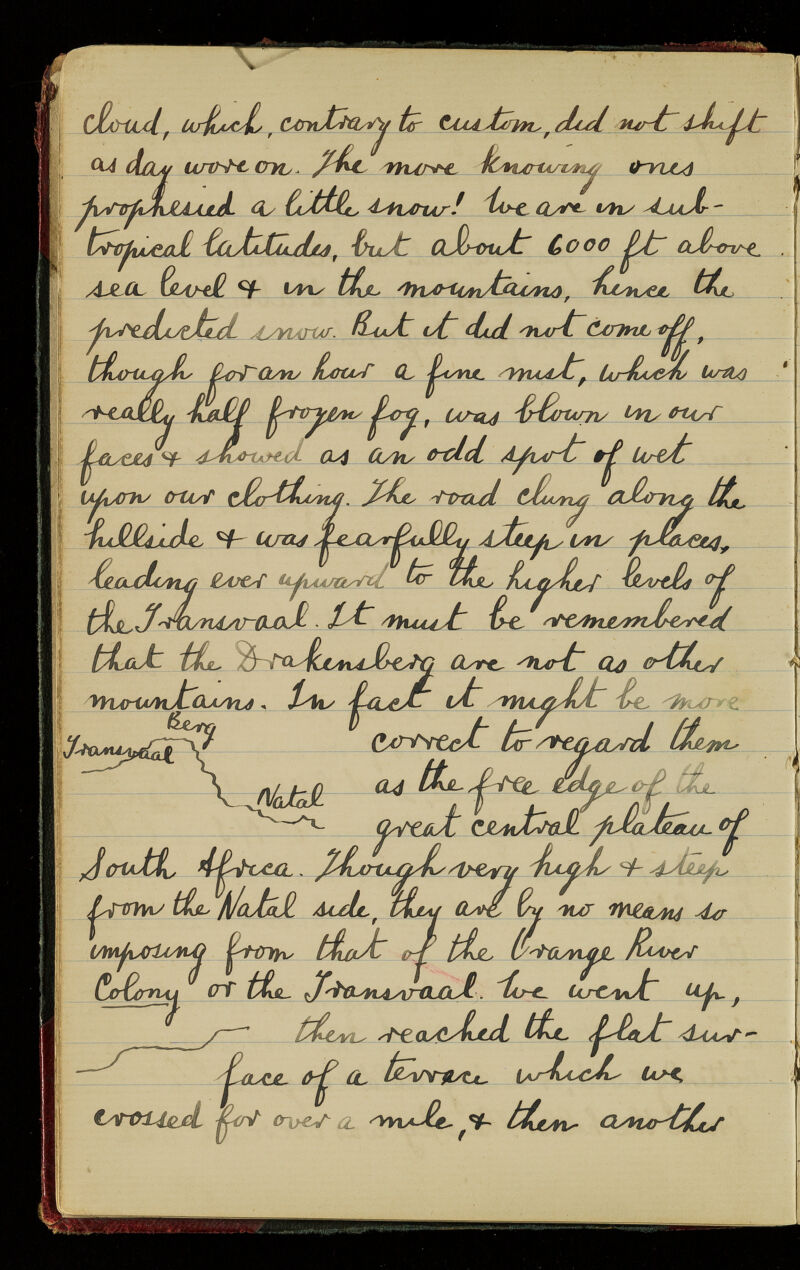 cloud, which, contrary to custom, did not shift
as day wore on. The more knowing ones
prophesied a little snow! We are in sub-
tropical latitudes, but about 6000 ft above
sea level & in the mountains, hence the
predicted snow. But it did not come off,
though for an hour a fine mist, which was
really half frozen fog, was blown in our
faces & showed as an odd spot of wet
upon our clothing. The road clung along the
hillside & was fearfully steep in places,
leading ever upward to the higher levels of
the Transvaal. It must be remembered
that the Drakensberg are not as other
mountains. In fact it might be more
Berg
Transvaal
Natal
correct to regard them
as the free edge of the
great central plateau of
South Africa. Though very high & steep
from the Natal side, they are by no means so
imposing from that of the Orange River
Colony or the Transvaal. We went up,
then reached the flat sur-
face of a terrace which we
crossed for over a mile, & then another